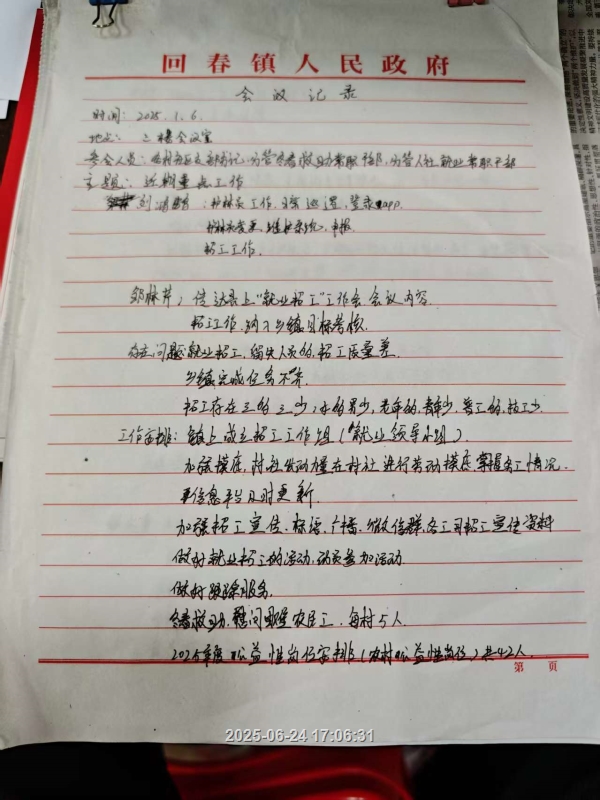 回春镇人民政府
会议记录
时间：2025.1.6.
地点：三楼会议室
参会人员：各村书记，分管就业兼职干部
主题：近期重点工作
刘：护林员工作，日常巡逻，登录app
护林员变更，维护系统，申报
招工工作.
邹林芹：传达县上“就业招工”工作会会议内容.
招工工作，纳入乡镇目标考核.
存在问题：就业招工，缩失人员多，招工质量差.
乡镇完成任务不齐
招工存在三多三少：女的多，男少，老年多，青年少，普工多，技工少.
工作安排：镇上成立招工工作组（“就业领导小组）.
加强摸底，村社发动力量在村社进行劳动摸底，掌握务工情况.
平信息平台及时更新.
加强招工宣传，标语，广播，微信群各工司招工宣传资料
做好就业招工的活动，动员参加活动
做好跟踪服务.
救助，慰问农民工，每村5人.
2025年度公益性岗位安排（农村公益性岗位）共42人.
第 页
2025-06-24 17:06:31